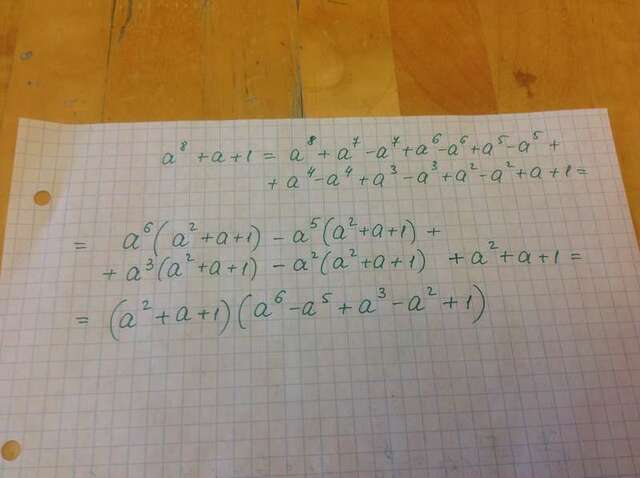 a⁸ + a + 1 = a⁸ + a⁷ - a⁷ + a⁶ - a⁶ + a⁵ - a⁵ +
+ a⁴ - a⁴ + a³ - a³ + a² - a² + a + 1 =
= a⁶(a² + a + 1) - a⁵(a² + a + 1) +
+ a³(a² + a + 1) - a²(a² + a + 1) + a² + a + 1 =
= (a² + a + 1)(a⁶ - a⁵ + a³ - a² + 1)